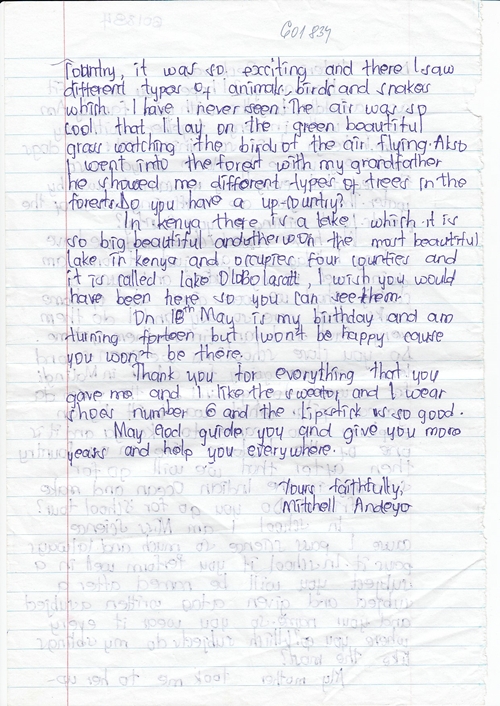 601834
Country, it was so exciting and there I saw
different types of animals, birds and snakes
which I have never seen. The air was so
cool that I lay on the green beautiful
grass watching the birds of the air flying. Also
I went into the forest with my grandfather
he showed me different types of trees in the
forests. Do you have a up-country?
In kenya there is a lake which it is
so big beautiful and the most beautiful
lake in kenya and occupies four counties and
it is called lake Olobolasatt, I wish you would
have been here so you can see them.
On 18th May is my birthday and am
turning forteen but I won't be happy cause
you won't be there.
Thank you for everything that you
gave me and I like the sweator and I wear
shoes number 6 and the Lipstick is so good.
May God guide you and give you more
years and help you everywhere.
Yours faithfully,
Mitchell Andeyo